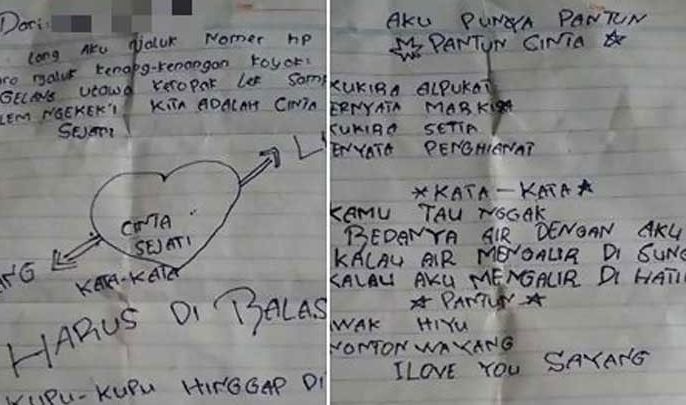 Dari:
Lang AKU njaluk Nomer hp
njaluk kenang-kenangan koyok:
GELANG utawa keropak Lek
NGEKEK'I KITA ADALAH CINTA
SEJATI
CINTA
SEJATI
KATA-KATA
HARUS DI BALAS
KUPU-KUPU HINGGAP DI
AKU PUNYA PANTUN
PANTUN CINTA
KUKIRA ALPUKAT
ERNYATA MARKISA
KUKIRA SETIA
ENYATA PENGHIANAT
KATA-KATA
KAMU TAU NGGAK
BEDANYA AIR DENGAN AKU
KALAU AIR MENGALIR DI SUNG
KALAU AKU MENGALIR DI HATI
PANTUN
WAK HIYU
NONTON WAYANG
I LOVE YOU SAYANG